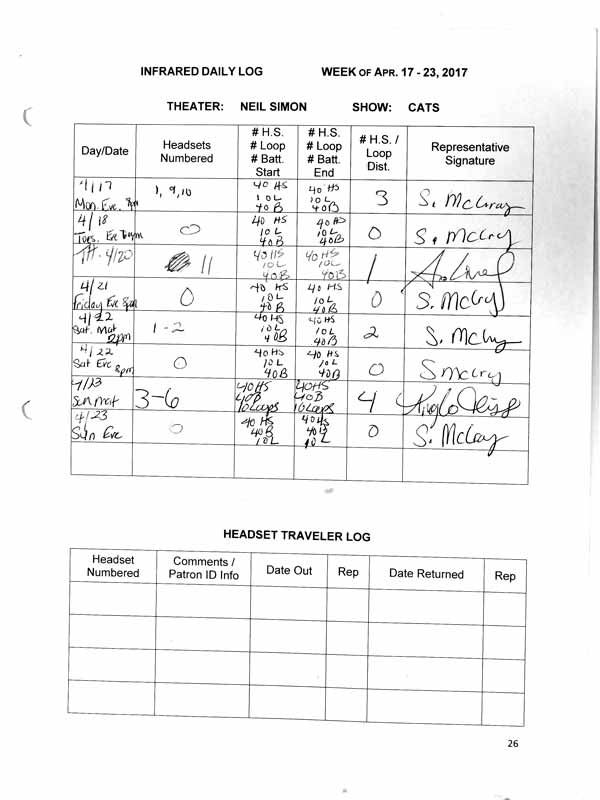 INFRARED DAILY LOG WEEK OF APR. 17 - 23, 2017
THEATER: NEIL SIMON SHOW: CATS
Day/Date Headsets Numbered # H.S. # Loop # Batt. Start # H.S. # Loop # Batt. End # H.S. / Loop Dist. Representative Signature
4/17 Mon. Eve. 8pm 1, 9, 10 40 HS 10 L 40 B 40 HS 10 L 40B 3 S. McCray
4/18 Tues. Eve 40 HS 10 L 40B 40 HS 10 L 40B 0 S. McCry
TH. 4/20 11 40 HS 10L 40B 40 HS 10L 40B 1
4/21 Friday Eve 8pm 0 40 HS 10L 40B 40 HS 10L 40B 0 S. McCry
4/22 Sat. Mat 2pm 1-2 40 HS 10L 40B 40 HS 10L 40B 2 S. McCry
4/22 Sat Eve 8pm 0 40HS 10L 40B 40 HS 10L 40B 0 S McCry
4/23 Sun mat 3-6 40HS 40B 10 Loops 40HS 40B 10 Loops 4
4/23 Sun Eve 0 40 HS 40B 10L 40HS 40B 10L 0 S. McCay
HEADSET TRAVELER LOG
Headset Numbered Comments / Patron ID Info Date Out Rep Date Returned Rep
26